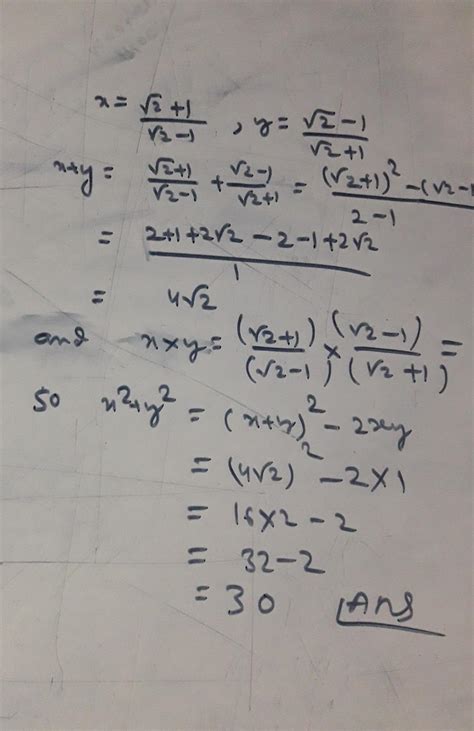 x = (√2+1)/(√2-1) , y = (√2-1)/(√2+1)
x+y = (√2+1)/(√2-1) + (√2-1)/(√2+1) = ((√2+1)² -(√2-1)/(2-1)
= (2+1+2√2 - 2-1+2√2)/1
= 4√2
and x×y = (√2+1)/(√2-1) × (√2-1)/(√2+1) =
so x²+y² = (x+y)² - 2xy
= (4√2)² - 2×1
= 16×2 - 2
= 32-2
= 30 Ans